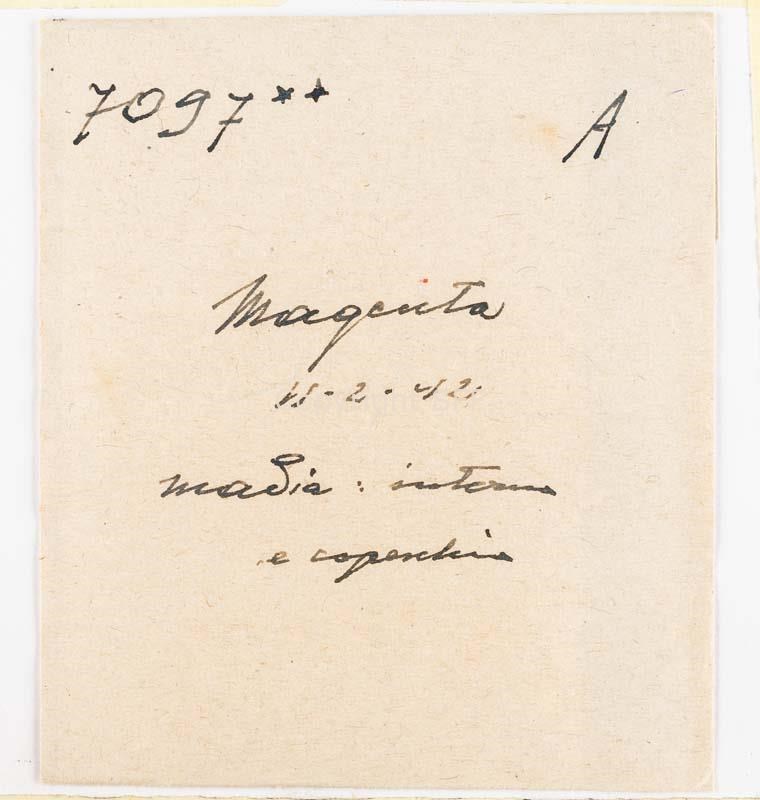 7097** A
Magenta
11-2-42
madia : interno
e coperchio